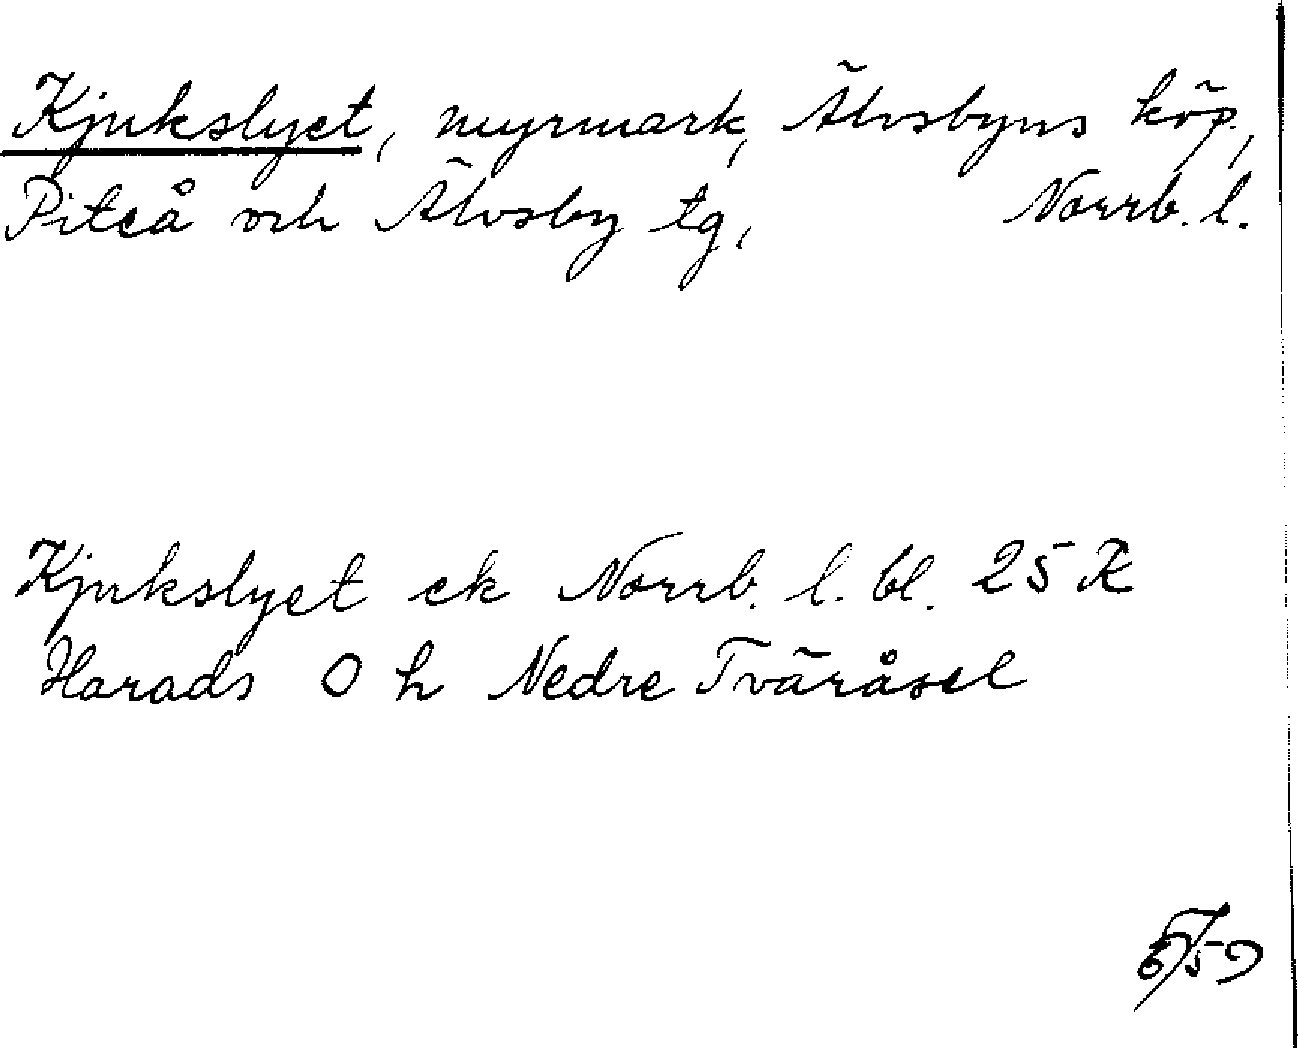 Kjukslyet, myrmark, Älvsbyns köp.,
Piteå och Älvsby tg, Norrb. l.
Kjukslyet ek Norrb. l. bl. 25 K
Harads O h Nedre Tväråsel